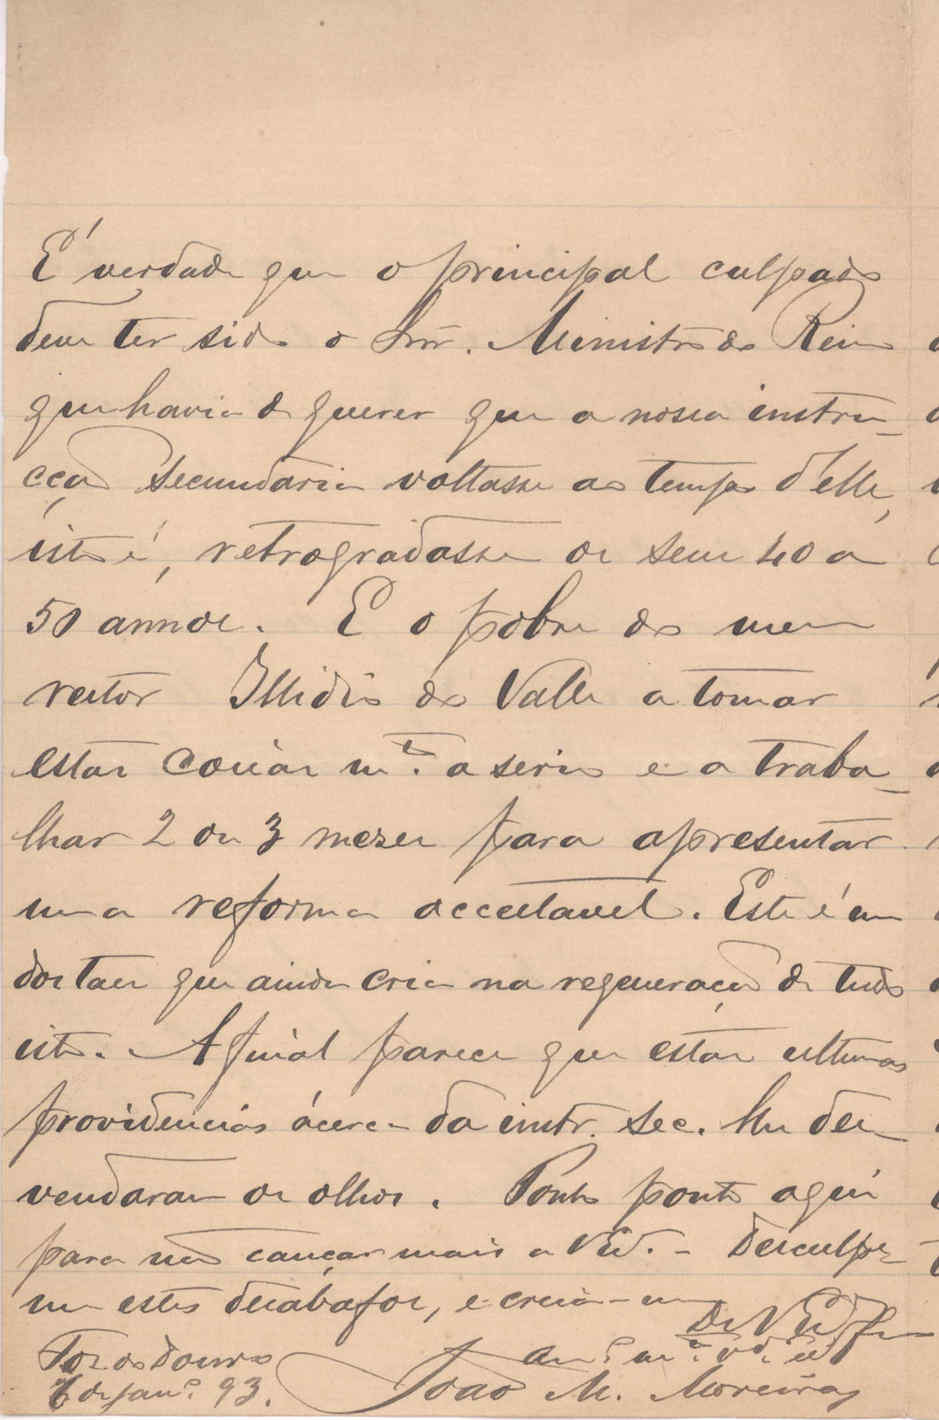 É verdade que o principal culpado
deve ter sido o Snr. Ministro do Reino
que havia de querer que a nossa instru-
cção secundaria voltasse ao tempo d'elle,
isto é, retrogradasse os seus 40 a
50 annos. E o pobre do meu
reitor Illidio do Valle a tomar
estas cousas m.to a serio e a traba-
lhar 2 ou 3 mezes para apresentar
uma reforma acceitavel. Este é um
dos taes que ainda cria na regeneração de tudo
isto. Afinal parece que estas ultimas
providencias ácerca da instr. sec. lhe des-
vendaram os olhos. Ponho ponto aqui
para não cançar mais a V. Ex.ª - Desculpe-
me estes desabafos, e creia-me
De V. Ex.ª
Foz do Douro
Am.º m.to
6 de Jan.º 93.
João M. Moreira